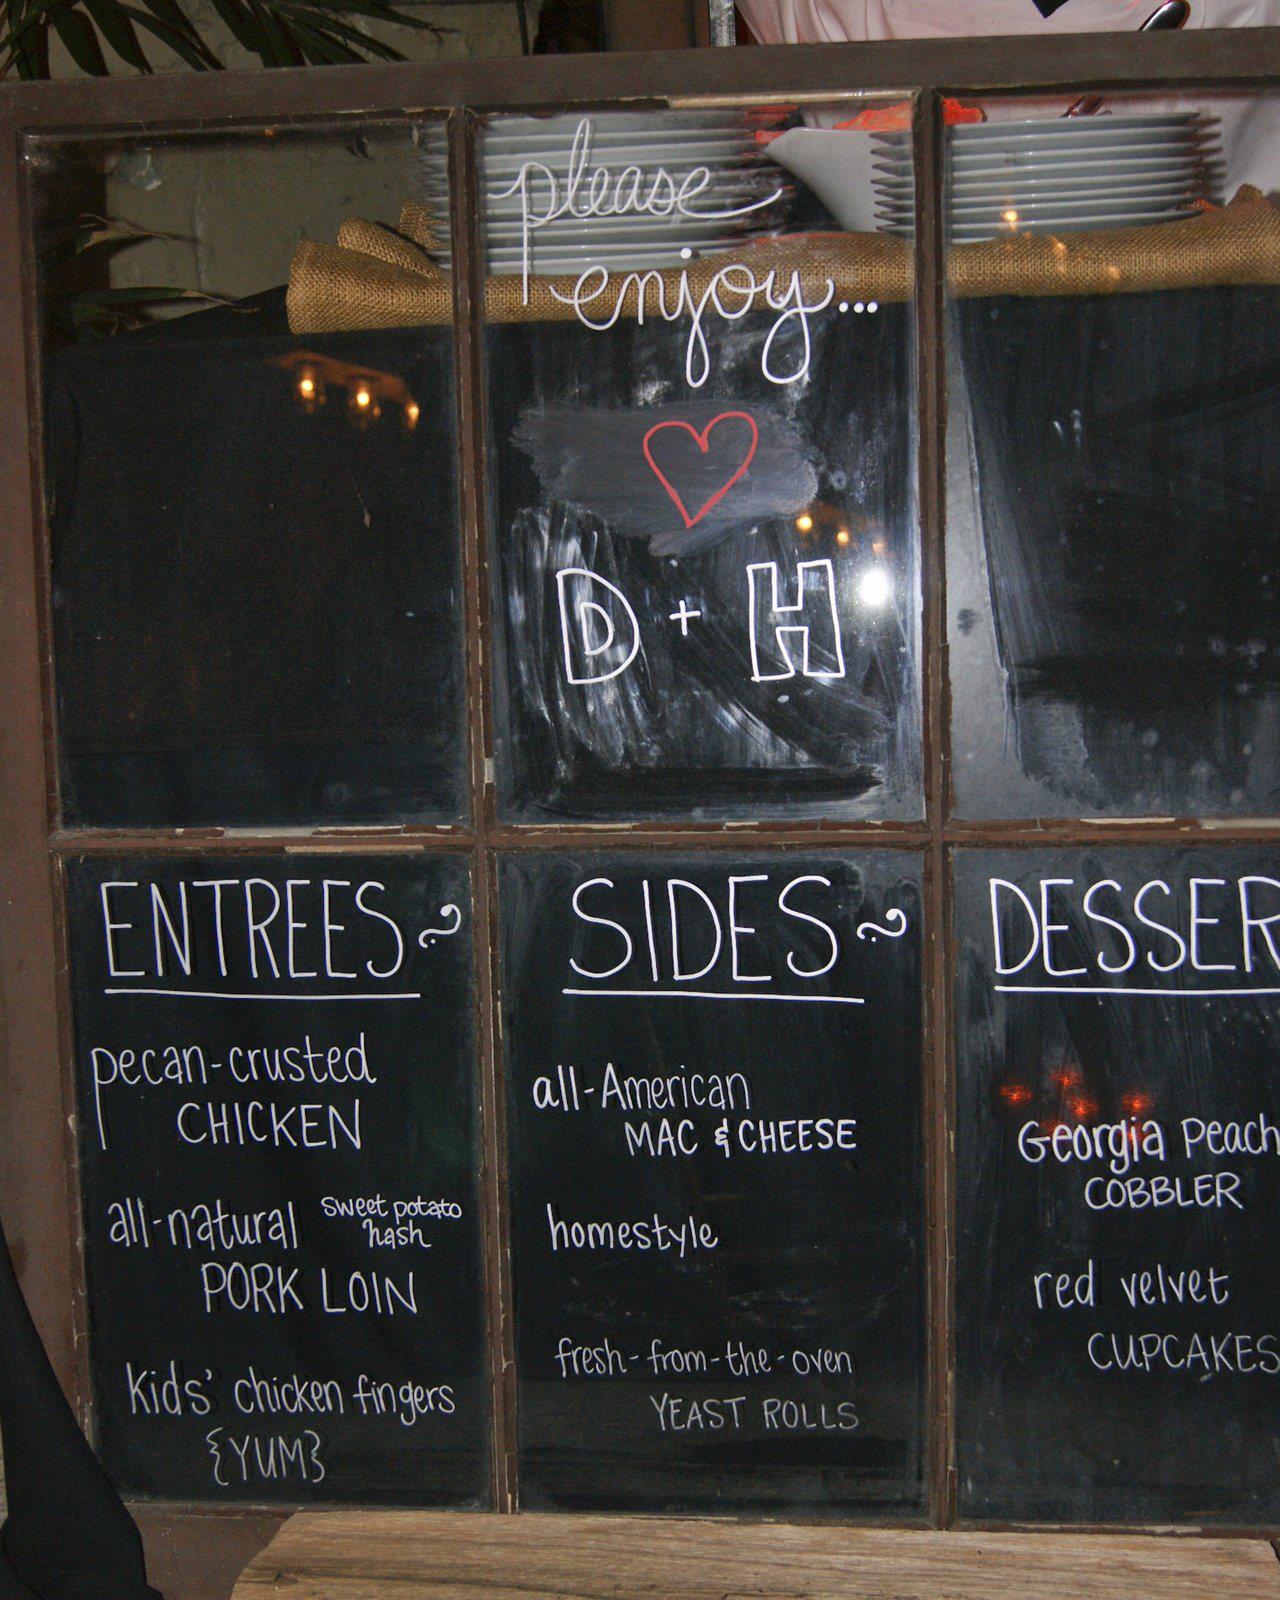 please
enjoy...
D + H
ENTREES
pecan-crusted
CHICKEN
all-natural sweet potato
hash
PORK LOIN
kids' chicken fingers
{YUM}
SIDES
all-American
MAC & CHEESE
homestyle
fresh-from-the-oven
YEAST ROLLS
DESSER
Georgia Peach
COBBLER
red velvet
CUPCAKES